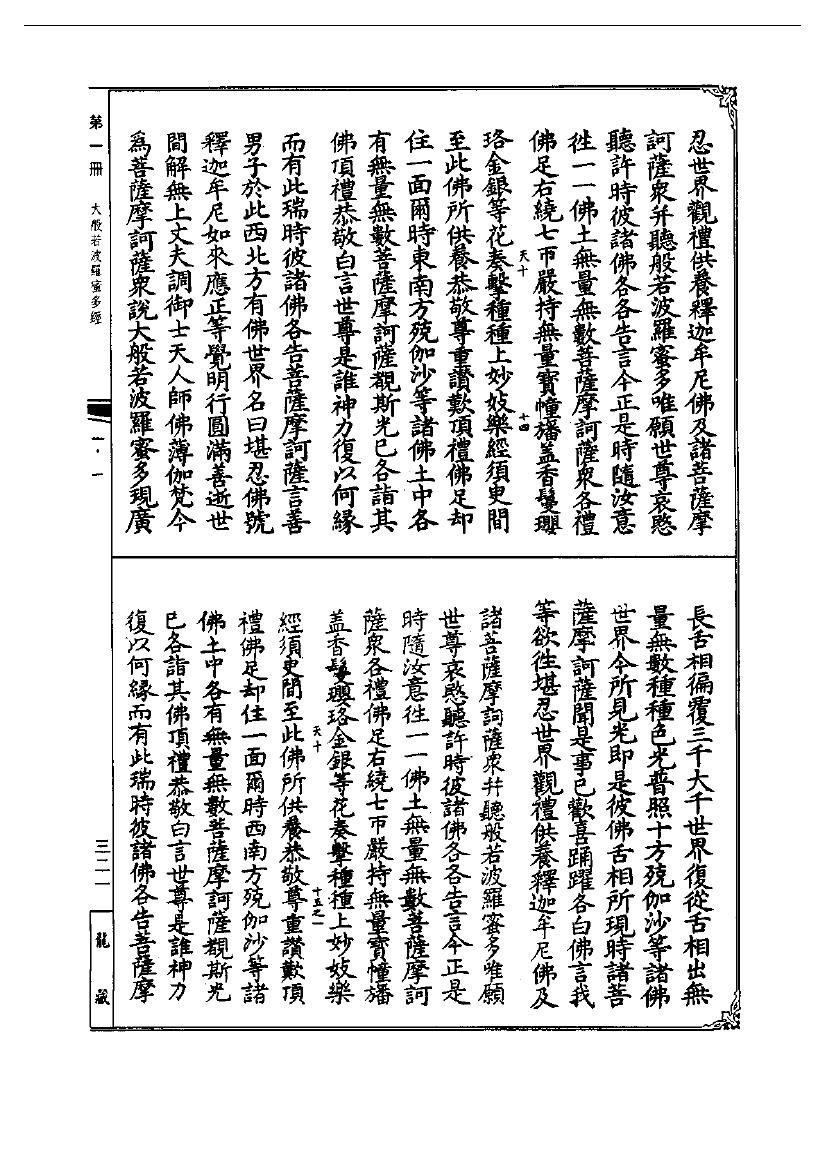 忍世界觀禮供養釋迦牟尼佛及諸菩薩摩
訶薩衆并聽般若波羅蜜多唯願世尊哀愍
聽許時彼諸佛各各告言今正是時隨汝意
徃一一佛土無量無數菩薩摩訶薩衆各禮
佛足右繞七帀嚴持無量寶幢旛盖香鬘瓔
珞金銀等花奏擊種種上妙妓樂經須臾間
天十
十四
至此佛所供養恭敬尊重讚歎頂禮佛足却
住一面爾時東南方殑伽沙等諸佛土中各
有無量無數菩薩摩訶薩覩斯光已各詣其
佛頂禮恭敬白言世尊是誰神力復以何緣
而有此瑞時彼諸佛各告菩薩摩訶薩言善
男子於此西北方有佛世界名曰堪忍佛號
釋迦牟尼如來應正等覺明行圓滿善逝世
間解無上丈夫調御士天人師佛薄伽梵今
爲菩薩摩訶薩衆說大般若波羅蜜多現廣
長舌相徧覆三千大千世界復從舌相出無
量無數種種色光普照十方殑伽沙等諸佛
世界今所見光即是彼佛舌相所現時諸菩
薩摩訶薩聞是事已歡喜踊躍各白佛言我
等欲徃堪忍世界觀禮供養釋迦牟尼佛及
諸菩薩摩訶薩衆并聽般若波羅蜜多唯願
世尊哀愍聽許時彼諸佛各各告言今正是
時隨汝意徃一一佛土無量無數菩薩摩訶
薩衆各禮佛足右繞七帀嚴持無量寶幢旛
盖香鬘瓔珞金銀等花奏擊種種上妙妓樂
天十
十五之一
經須臾間至此佛所供養恭敬尊重讚歎頂
禮佛足却住一面爾時西南方殑伽沙等諸
佛土中各有無量無數菩薩摩訶薩覩斯光
已各詣其佛頂禮恭敬白言世尊是誰神力
復以何緣而有此瑞時彼諸佛各告菩薩摩
第一冊 大般若波羅蜜多經
一·一
三二一
龍藏